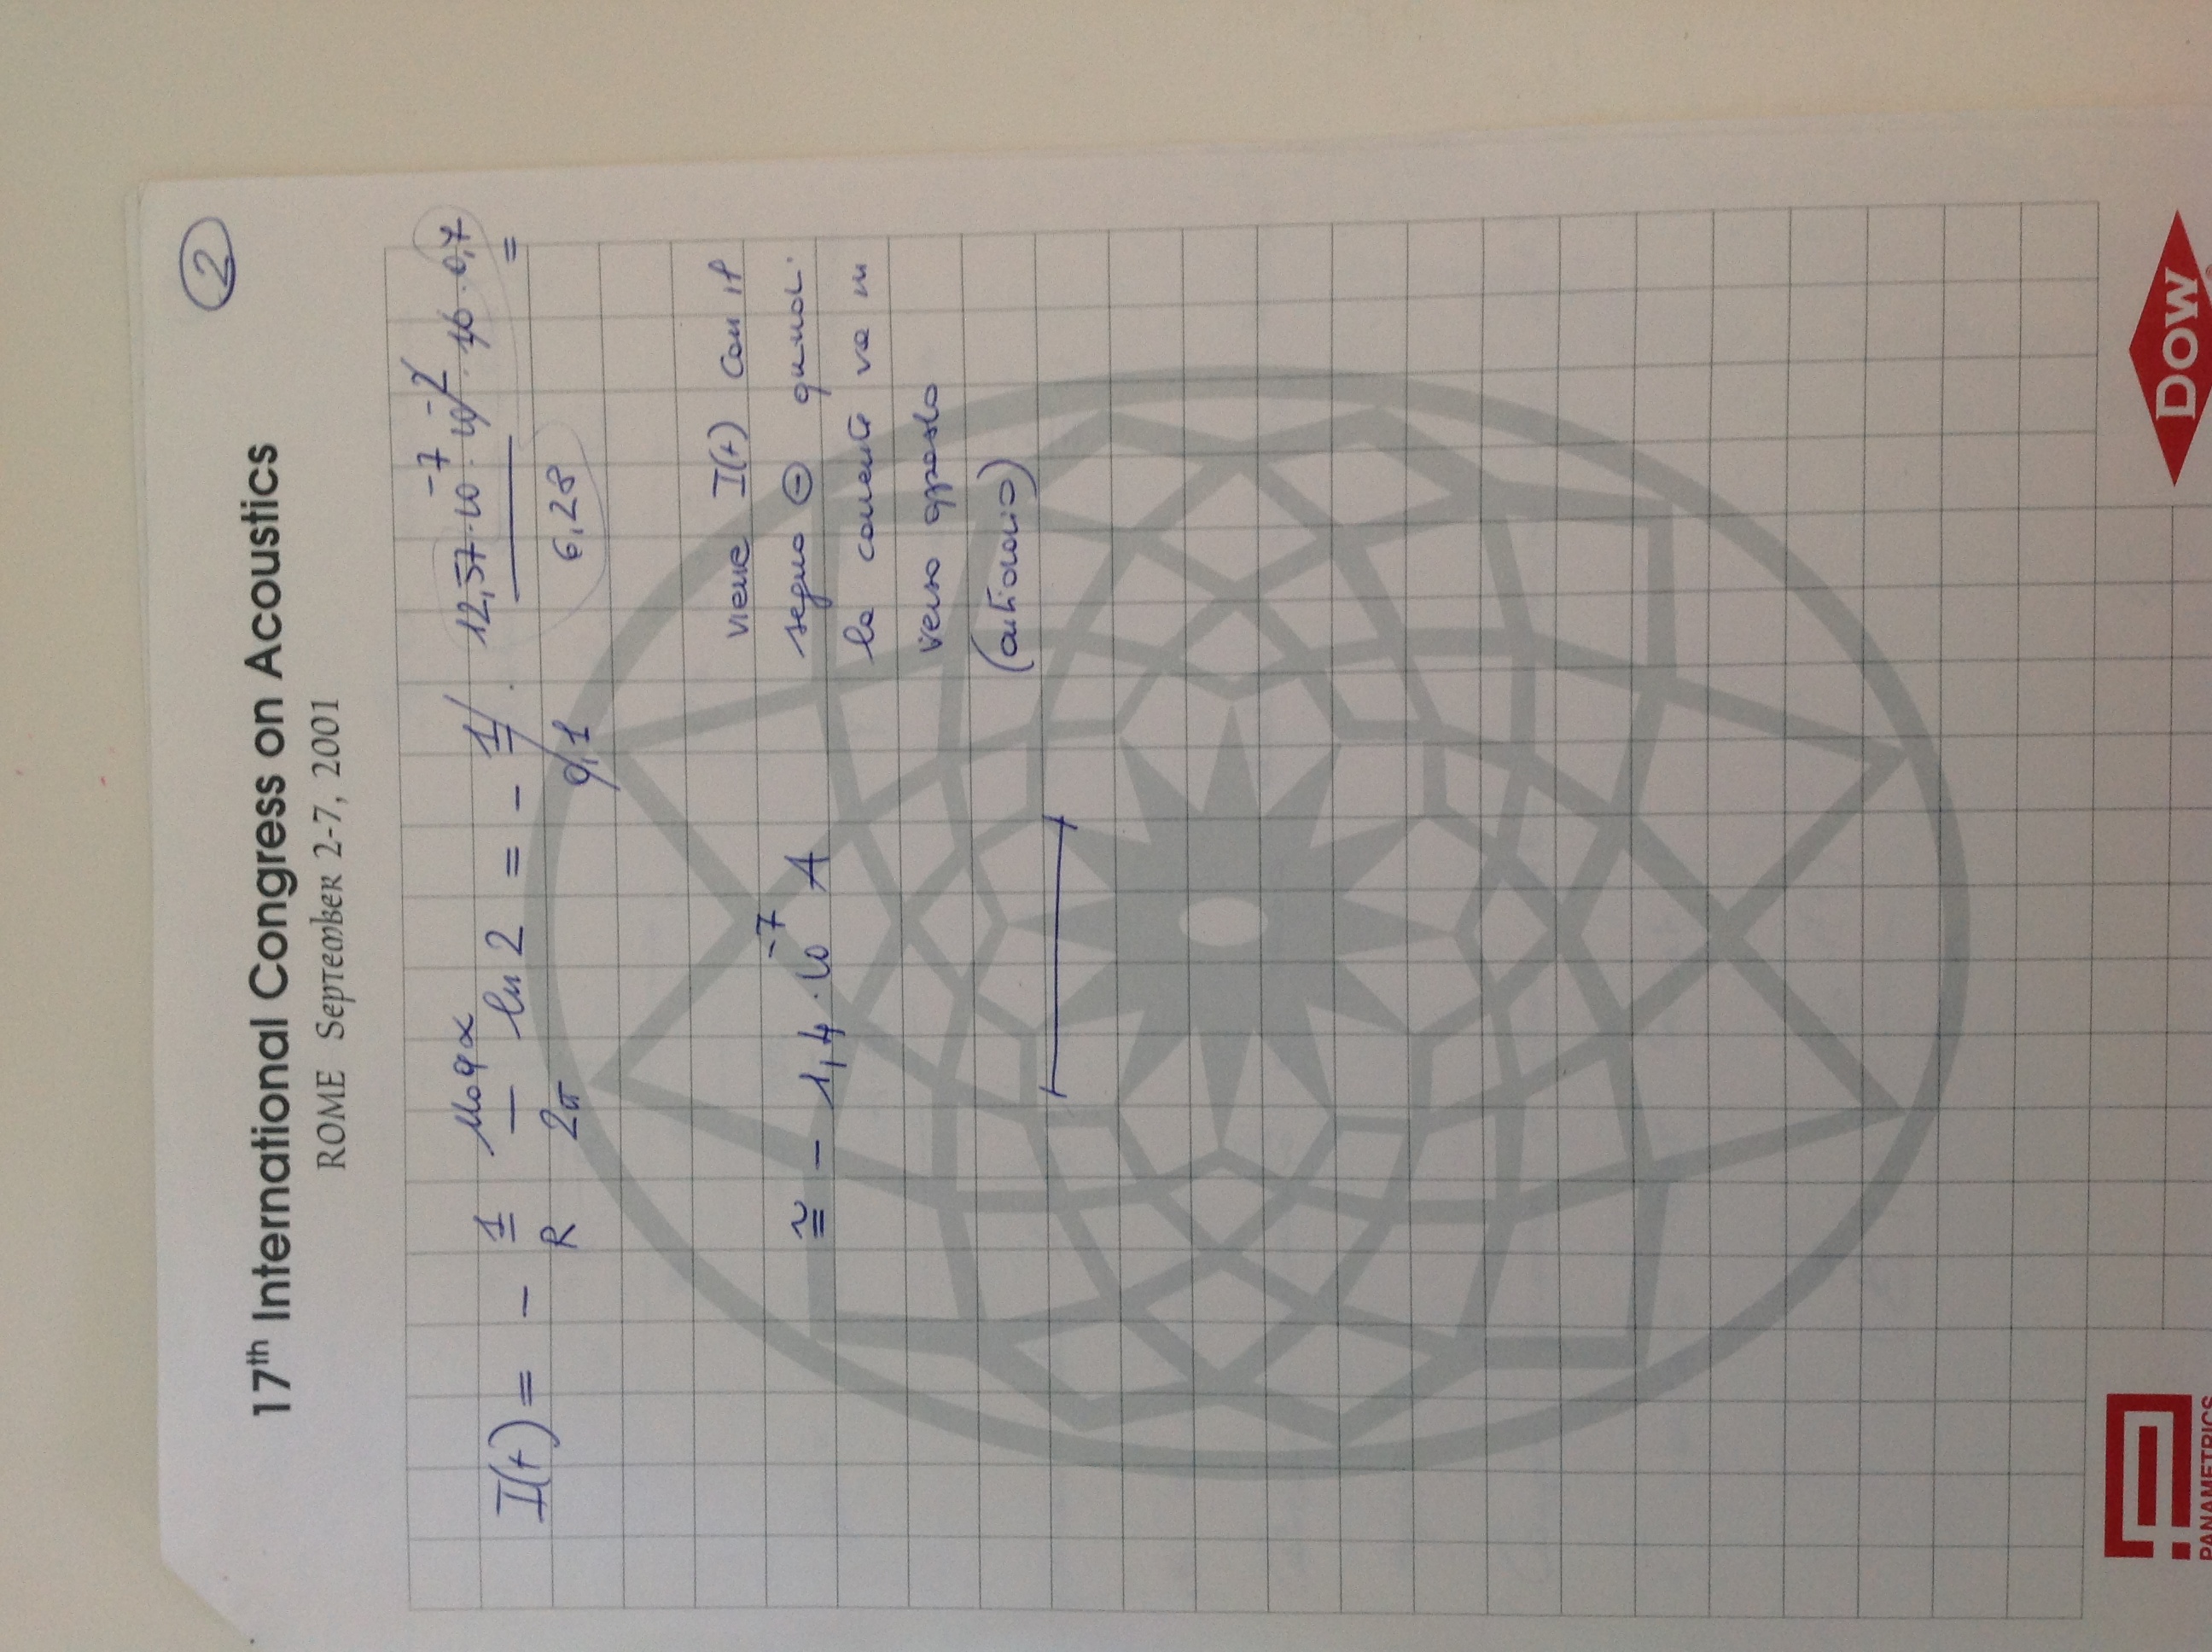 2
17th International Congress on Acoustics
ROME September 2-7, 2001
I(t) = - 1/R μ₀aα/2π ln 2 = - 1/0,1 · 12,57·10⁻⁷·10⁻²·10·0,7/6,28 =
≅ - 1,4·10⁻⁷ A
viene I(t) con il
segno ⊖ quindi
la corrente va in
verso opposto
(antiorario)
PANAMETRICS
DOW
®